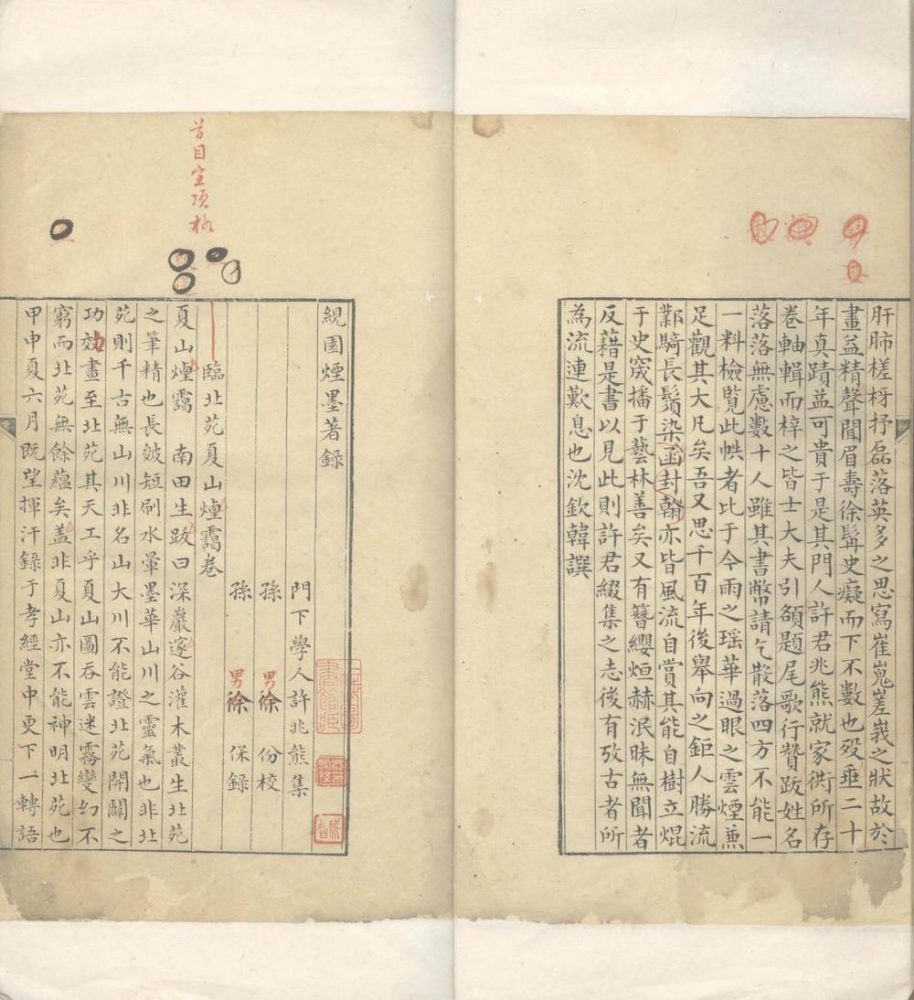 肝肺槎枒抒磊落英多之思寫崔嵬嵳峩之狀故於
畫益精聲聞眉壽徐髯史癡而下不數也歿垂二十
年真蹟益可貴于是其門人許君兆熊就家衖所存
卷軸輯而梓之皆士大夫引頟題尾歌行贊跋姓名
落落無慮數十人雖其書幣請乞散落四方不能一
一料檢覽此帙者比于今雨之瑶華過眼之雲煙兼
足觀其大凡矣吾又思千百年後舉向之鉅人勝流
鄴騎長鬚染函封翰亦皆風流自賞其能自樹立焜
于史宬播于藝林善矣又有簪纓烜赫泯昧無聞者
反藉是書以見此則許君綴集之志後有攷古者所
為流連歎息也沈欽韓譔
昔目空頂格
緄園煙墨著錄
門下學人許兆熊集
孫 男 徐 份校
孫 男 徐 保錄
臨北苑夏山煙靄卷
夏山煙靄 南田生跋曰深巖邃谷灌木叢生北苑
之筆精也長皴短刷水暈墨華山川之靈氣也非北
苑則千古無山川非名山大川不能證北苑開闢之
功效畫至北苑其天工乎夏山圖吞雲迷霧變幻不
窮而北苑無餘蘊矣盖非夏山亦不能神明北苑也
甲申夏六月既望揮汗錄于孝經堂中更下一轉語